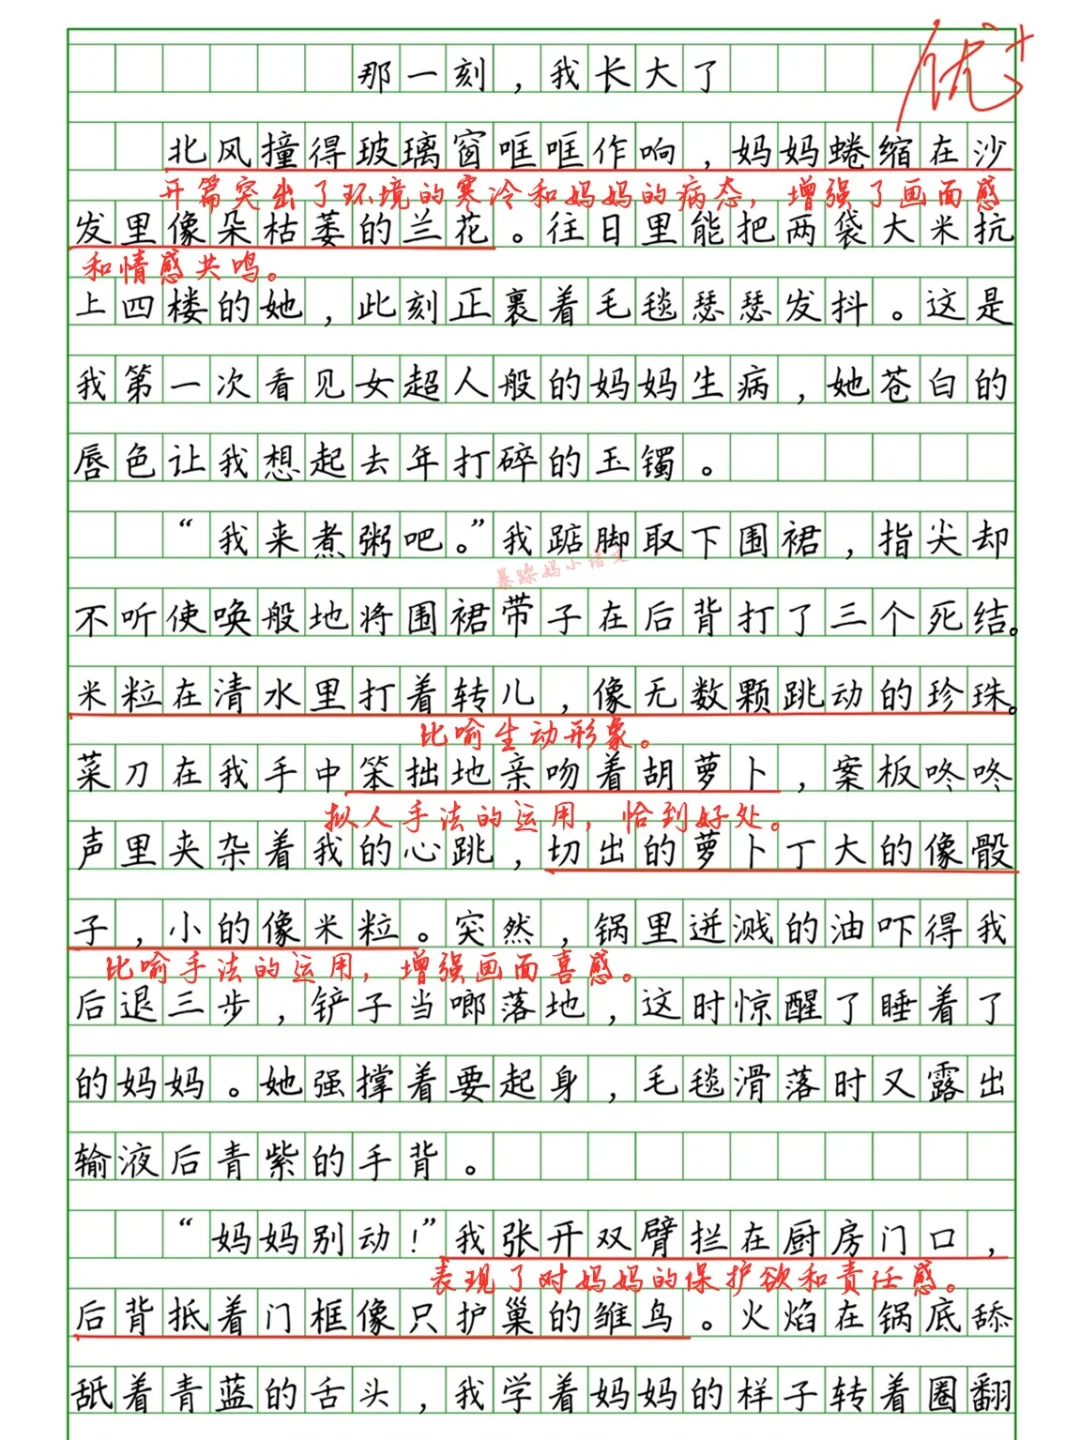 那一刻，我长大了
优+
北风撞得玻璃窗哐哐作响，妈妈蜷缩在沙
开篇突出了环境的寒冷和妈妈的病态，增强了画面感
发里像朵枯萎的兰花。往日里能把两袋大米抗
和情感共鸣。
上四楼的她，此刻正裹着毛毯瑟瑟发抖。这是
我第一次看见女超人般的妈妈生病，她苍白的
唇色让我想起去年打碎的玉镯。
“我来煮粥吧。”我踮脚取下围裙，指尖却
暴躁妈小语文
不听使唤般地将围裙带子在后背打了三个死结。
米粒在清水里打着转儿，像无数颗跳动的珍珠。
比喻生动形象。
菜刀在我手中笨拙地亲吻着胡萝卜，案板咚咚
拟人手法的运用，恰到好处。
声里夹杂着我的心跳，切出的萝卜丁大的像骰
子，小的像米粒。突然，锅里迸溅的油吓得我
比喻手法的运用，增强画面喜感。
后退三步，铲子当啷落地，这时惊醒了睡着了
的妈妈。她强撑着要起身，毛毯滑落时又露出
输液后青紫的手背。
“妈妈别动！”我张开双臂拦在厨房门口，
表现了对妈妈的保护欲和责任感。
后背抵着门框像只护巢的雏鸟。火焰在锅底舔
舐着青蓝的舌头，我学着妈妈的样子转着圈翻